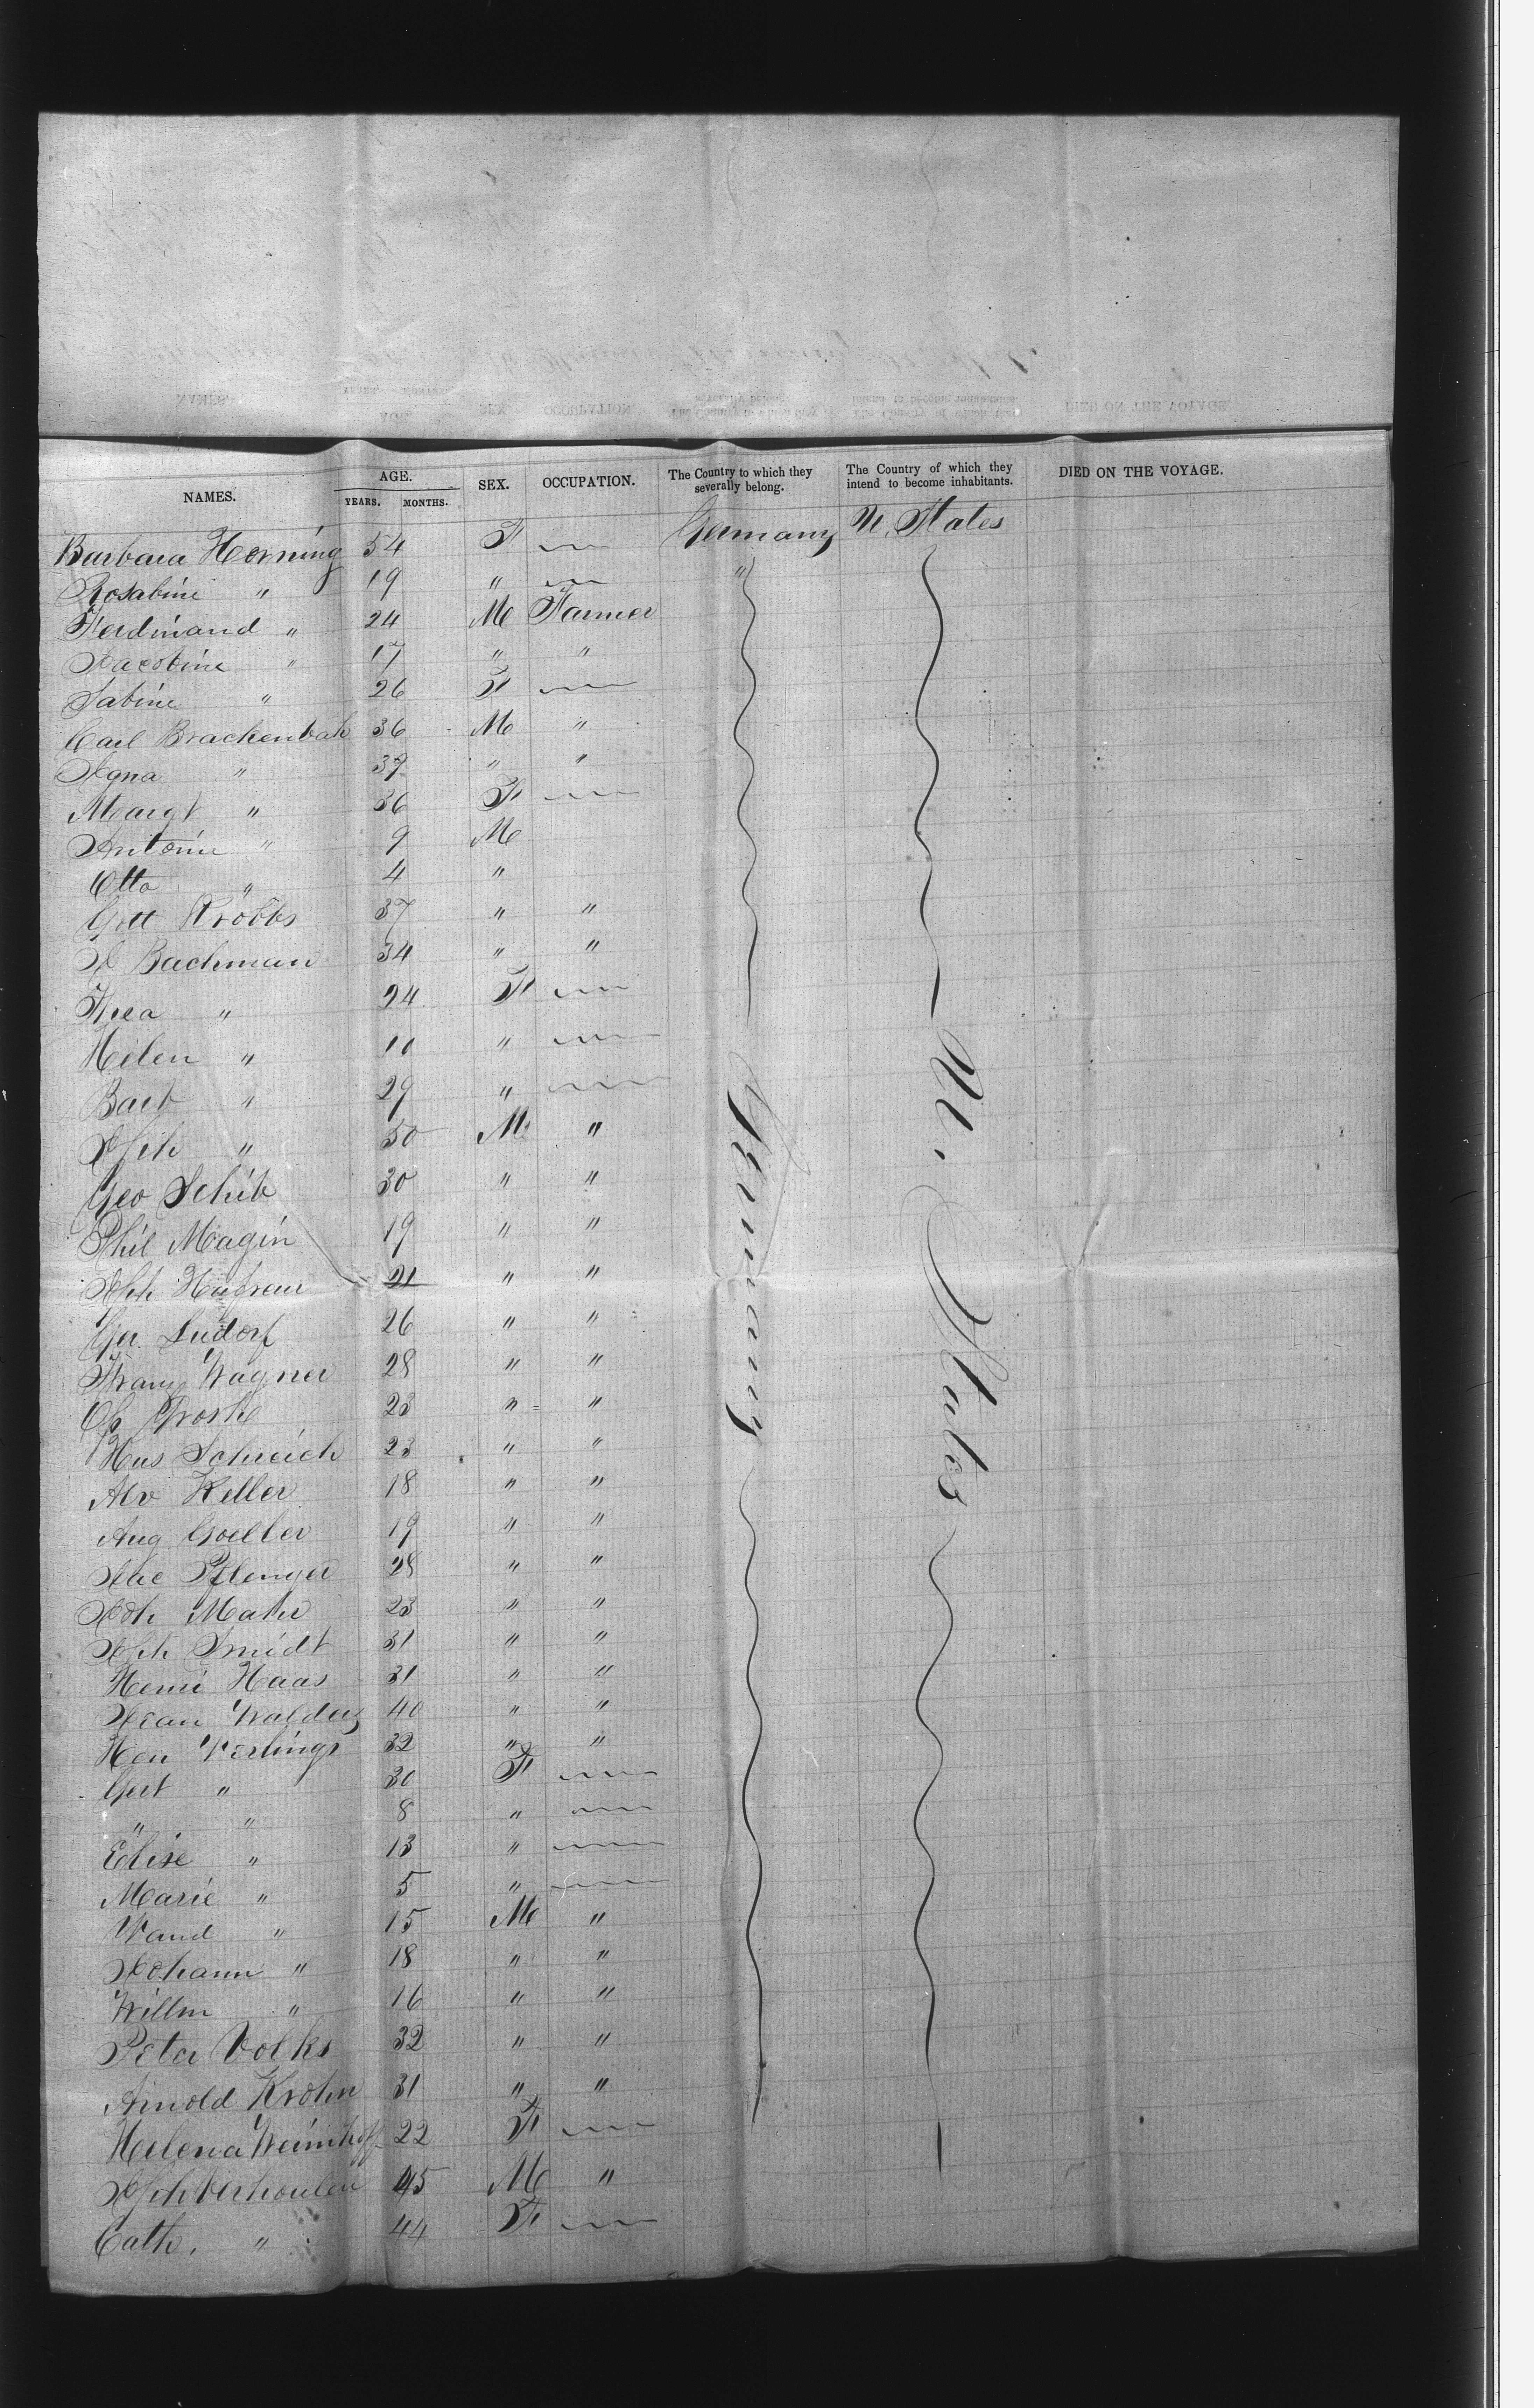 NAMES. AGE. YEARS. MONTHS. SEX. OCCUPATION. The Country to which they severally belong. The Country of which they intend to become inhabitants. DIED ON THE VOYAGE.
Barbara Horning 54 F Germany U. States
Rosabine " 19 " "
Ferdinand " 24 M Farmer
Jacobine " 17 " "
Sabine " 26 F
Carl Brackenbah 36 M "
Agna " 37 " "
Margt " 36 F
Antoin " 9 M
Otto " 4 "
Gott Krobbs 37 " "
J Bachman 34 " "
" 24 F
Helen " 10 "
Barb " 29 "
" 50 M "
Geo Schib 30 " "
Phil Magin 19 " "
21 " "
Ludorf 26 " "
Franz Wagner 28 " "
23 " "
Schreich 23 " "
Keller 18 " "
Aug Goeller 19 " "
Jac Pflenger 28 " "
Joh Mahr 23 " "
Smidt 31 " "
Henri Haas 31 " "
Jean 40 " "
Hen Verlings 32 " "
Gert " 30 F
" " 8 "
Elise " 13 "
Marie " 5 "
Wand " 15 M "
Johann " 18 " "
Willm " 16 " "
Peter Volks 32 " "
Arnold Krohn 31 " "
Helena Weimhoff 22 F
Verhoulen 45 M "
Cath. " 44 F
Germany
U. States